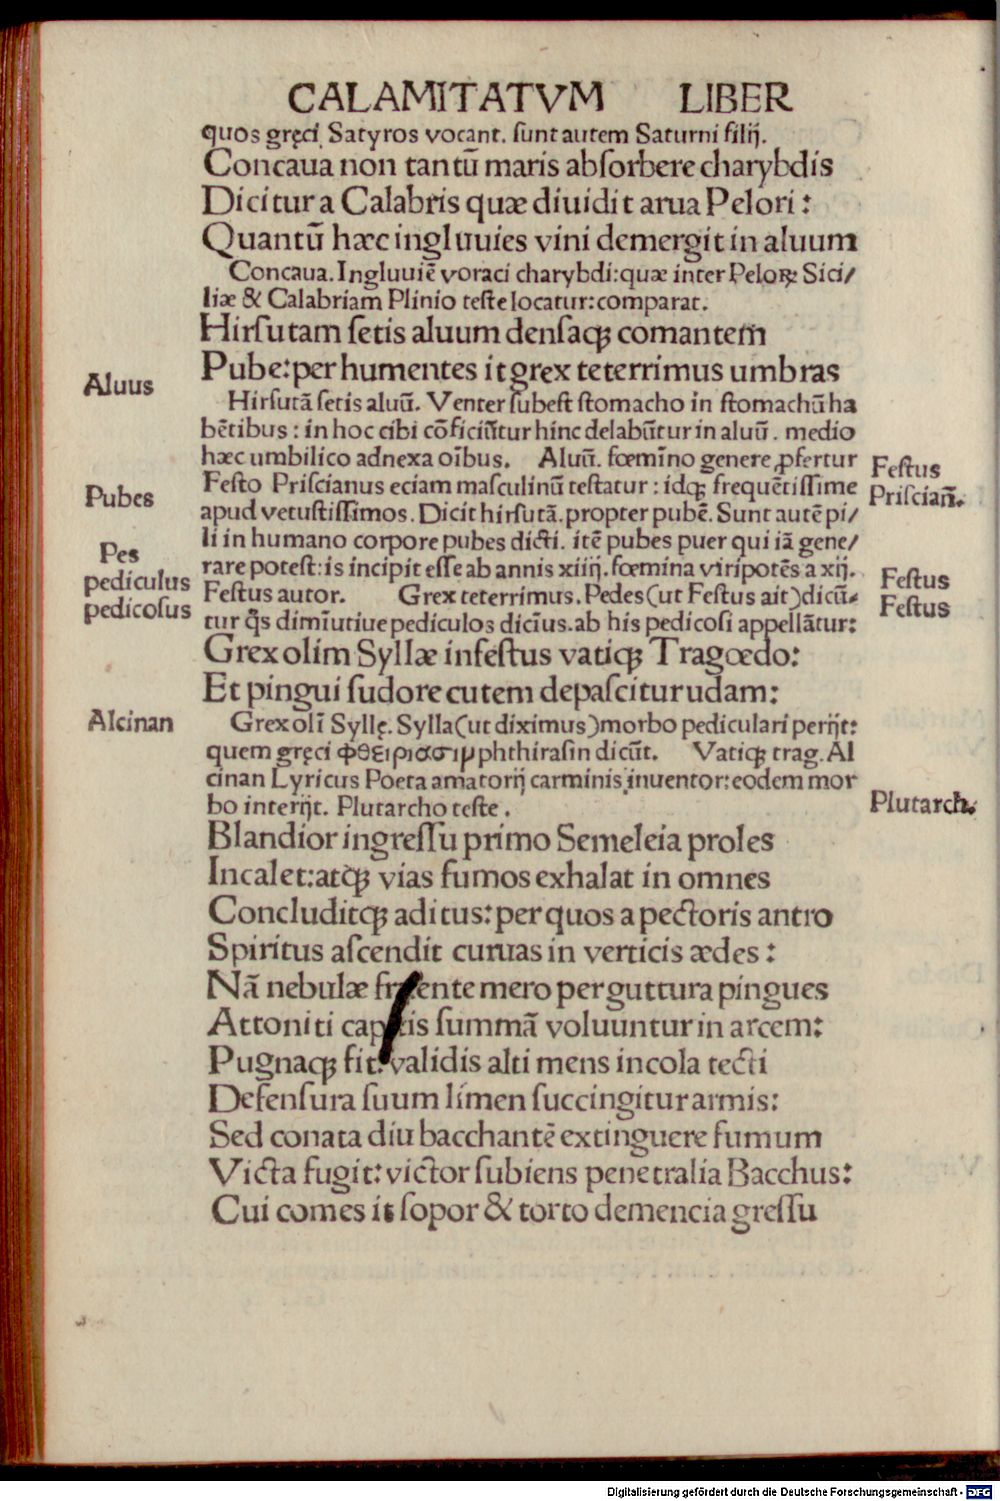 CALAMITATVM LIBER
quos gręci Satyros vocant. ſunt autem Saturni filij.
Concaua non tantū maris abſorbere charybdis
Dicitur a Calabris quæ diuidit arua Pelori:
Quantū hæc ingluuies vini demergit in aluum
Concaua. Ingluuiē voraci charybdi: quæ inter Peloꝝ Sici/
liæ & Calabriam Plinio teſte locatur: comparat.
Hirſutam ſetis aluum denſaqꝫ comantem
Pube: per humentes it grex teterrimus umbras
Aluus
Hirſutā ſetis aluū. Venter ſubeſt ſtomacho in ſtomachū ha
bētibus: in hoc cibi cōficiūtur hinc delabūtur in aluū. medio
hæc umbilico adnexa oībus. Aluū. fœmīno genere ꝓfertur
Feſtus
Feſto Priſcianus eciam maſculinū teſtatur: idqꝫ frequētiſſime
Priſciañ.
Pubes
apud vetuſtiſſimos. Dicit hirſutā. propter pubē. Sunt autē pi/
li in humano corpore pubes dicti. itē pubes puer qui iā gene/
Pes
rare poteſt: is incipit eſſe ab annis xiiij. fœmina viripotēs a xij.
pediculus
Feſtus autor. Grex teterrimus. Pedes (ut Feſtus ait) dicū-
Feſtus
pedicoſus
tur q̄s dimīutiue pediculos dicīus. ab his pedicoſi appellātur:
Feſtus
Grex olim Syllæ infeſtus vatiqꝫ Tragœdo:
Et pingui ſudore cutem depaſcitur udam:
Alcinan
Grex olī Syllę. Sylla (ut diximus) morbo pediculari perijt:
quem gręci φθειριασιμ phthiraſin dicūt. Vatiqꝫ trag. Al
cinan Lyricus Poeta amatorij carminis inuentor: eodem mor
bo interijt. Plutarcho teſte.
Plutarch.
Blandior ingreſſu primo Semeleia proles
Incalet: atqꝫ vias fumos exhalat in omnes
Concluditqꝫ aditus: per quos a pectoris antro
Spiritus aſcendit curuas in verticis ædes:
Nā nebulæ ente mero per guttura pingues
Attoniti ſummā voluuntur in arcem:
Pugnaqꝫ fit: validis alti mens incola tecti
Defenſura ſuum limen ſuccingitur armis:
Sed conata diu bacchantē extinguere fumum
Victa fugit: victor ſubiens penetralia Bacchus:
Cui comes it ſopor & torto demencia greſſu
Digitalisierung gefördert durch die Deutsche Forschungsgemeinschaft - DFG